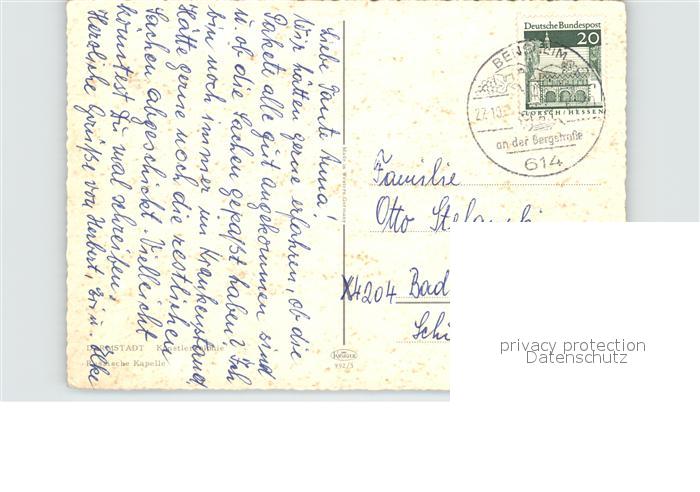 Liebe Tante Anna!
Wir hätten gerne erfahren, ob die
Pakete alle gut angekommen sind
u. ob die Sachen gepaßt haben? Ich
bin noch immer im Krankenstand,
Hätte gerne noch die restlichen
Sachen abgeschickt. Vielleicht
könntest Du mal schreiben!
Herzliche Grüße von Herbert, Evi u. Elke
DARMSTADT Künstlerkolonie
Russische Kapelle
KRÜGER
992/5
Deutsche Bundespost
20
LORSCH/HESSEN
BENSHEIM
22.10.
an der Bergstraße
614
Familie
Otto
X4204 Bad
Schi
privacy protection
Datenschutz